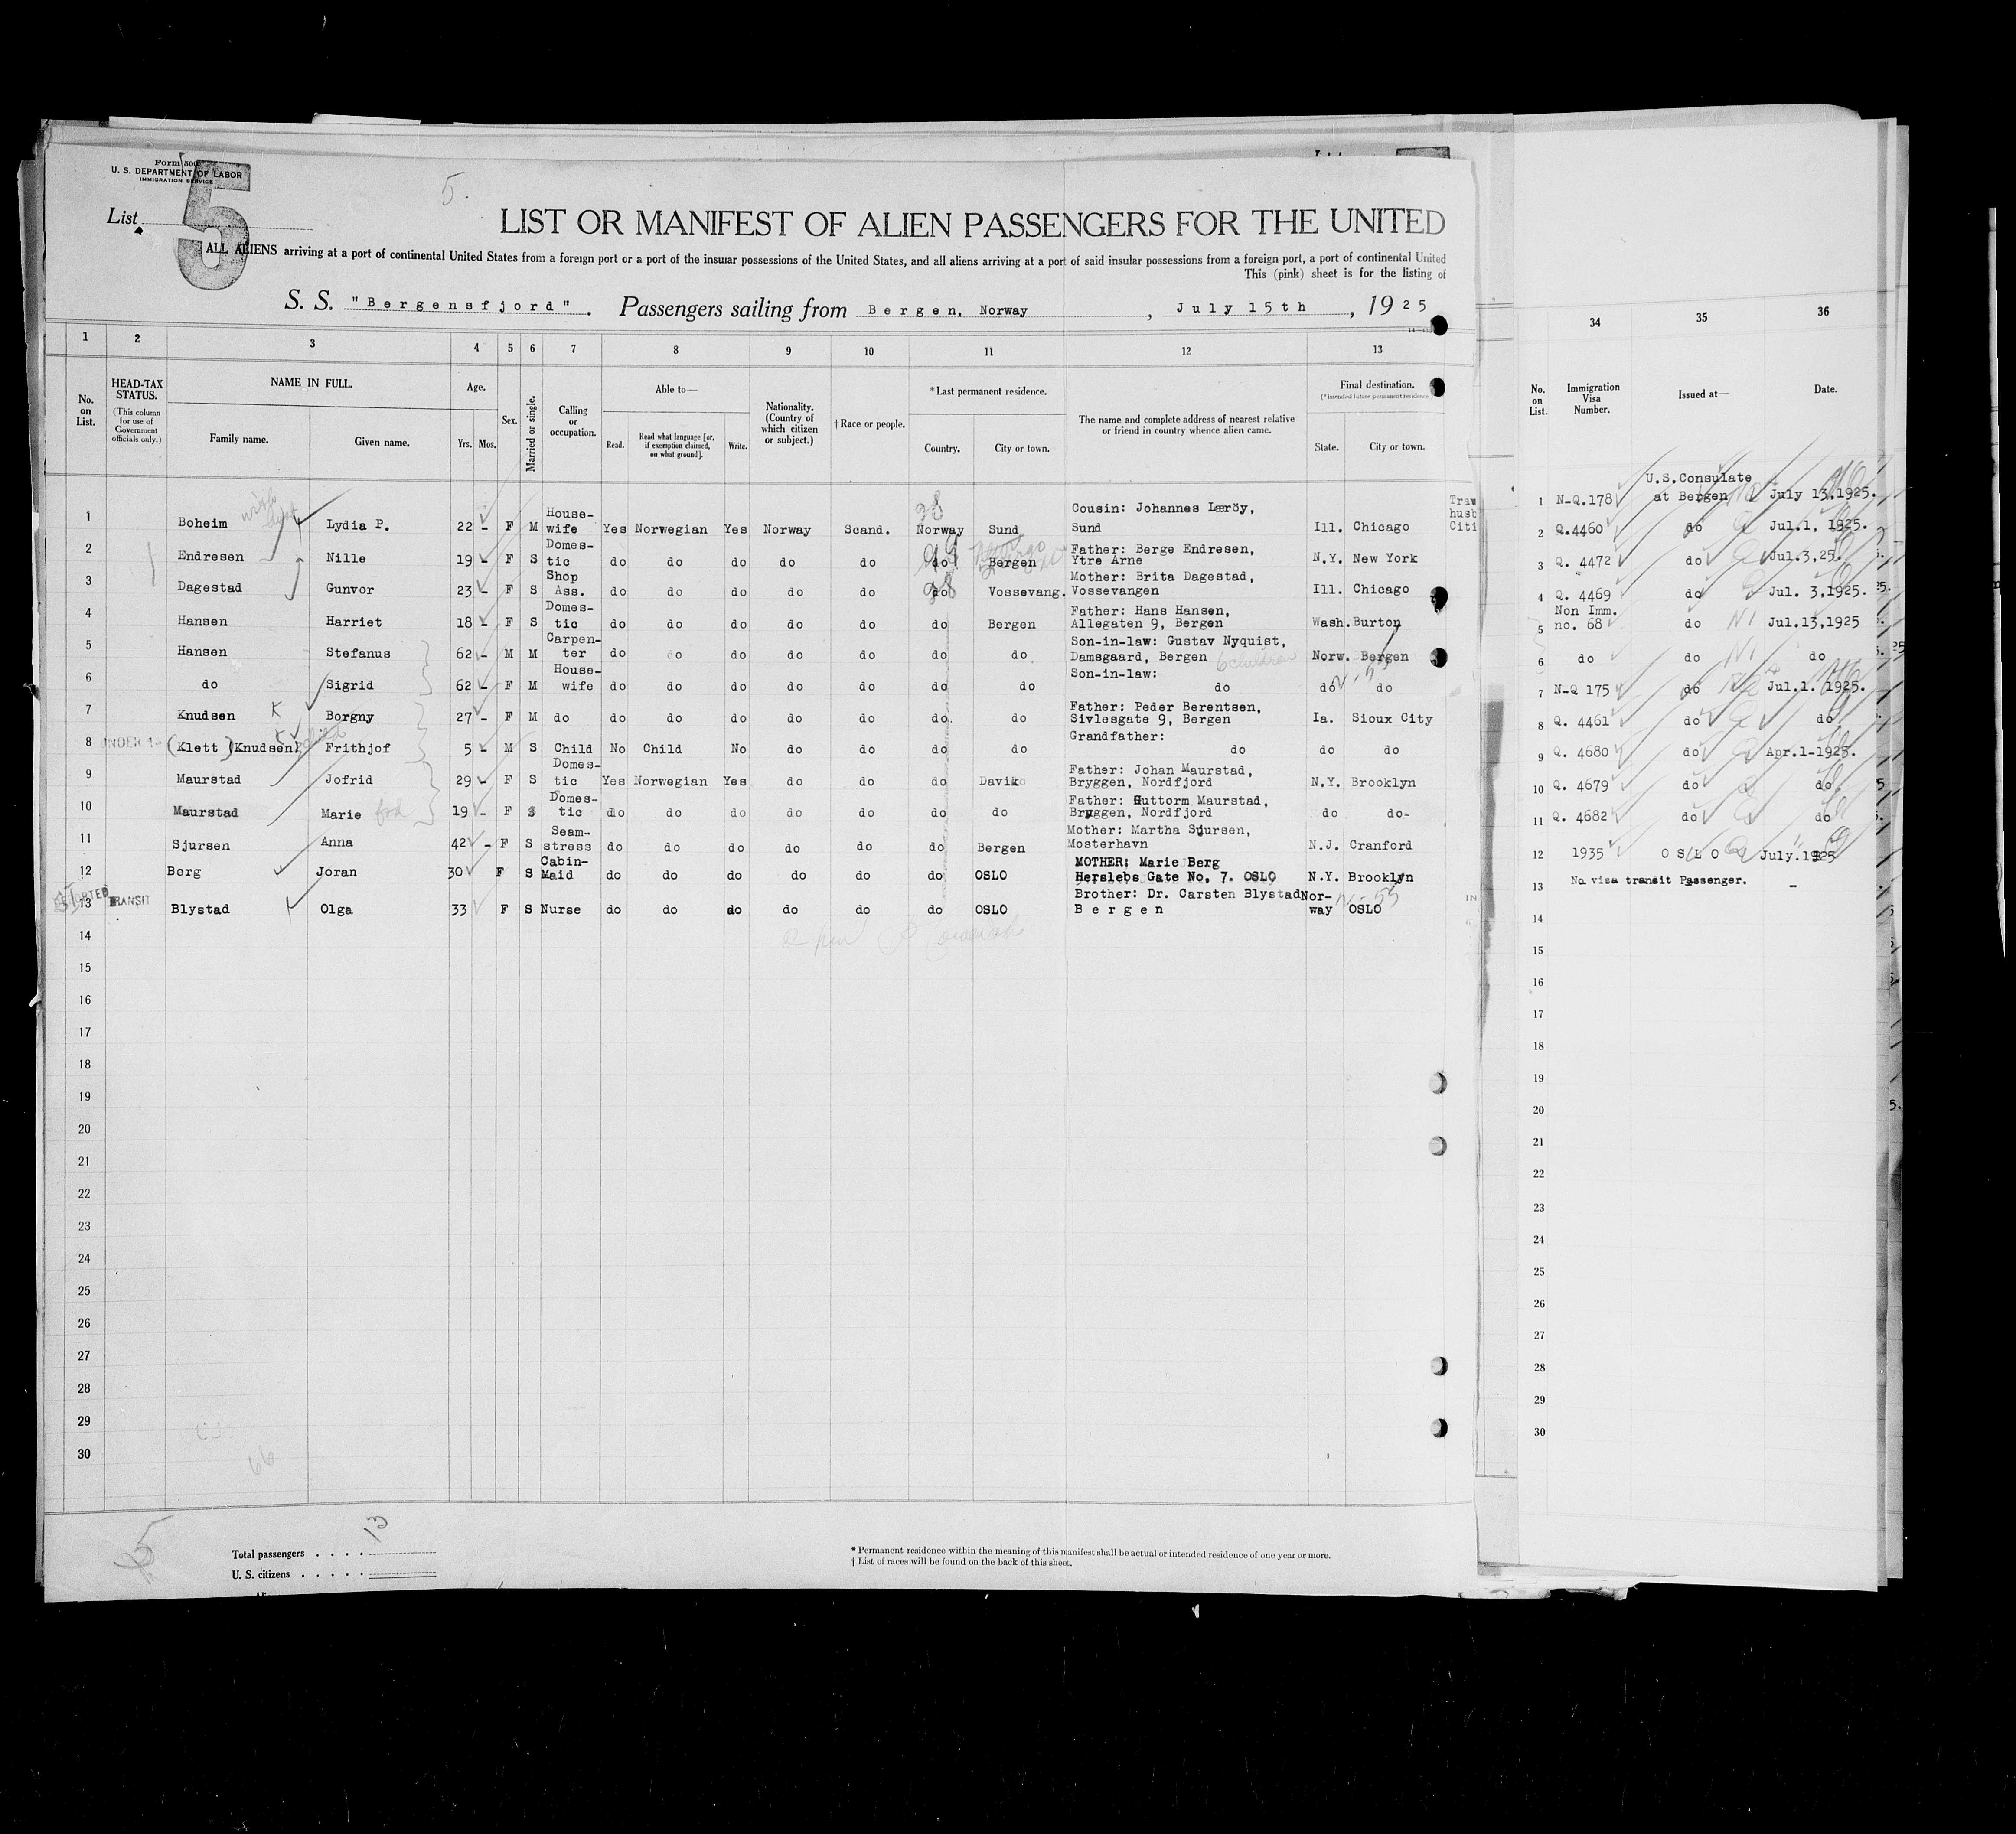 Form 500
U. S. DEPARTMENT OF LABOR
IMMIGRATION SERVICE
List
5
5.
LIST OR MANIFEST OF ALIEN PASSENGERS FOR THE UNITED
ALL ALIENS arriving at a port of continental United States from a foreign port or a port of the insular possessions of the United States, and all aliens arriving at a port of said insular possessions from a foreign port, a port of continental United
This (pink) sheet is for the listing of
S. S. "Bergensfjord". Passengers sailing from Bergen, Norway, July 15th, 1925
1 2 3 4 5 6 7 8 9 10 11 12 13
No. on List.
HEAD-TAX STATUS.
(This column for use of Government officials only.)
NAME IN FULL.
Family name. Given name.
Age.
Yrs. Mos.
Sex.
Married or single.
Calling or occupation.
Able to—
Read. Read what language [or, if exemption claimed, on what ground]. Write.
Nationality. (Country of which citizen or subject.)
†Race or people.
*Last permanent residence.
Country. City or town.
The name and complete address of nearest relative or friend in country whence alien came.
Final destination.
(*Intended future permanent residence.)
State. City or town.
1 Boheim Lydia P. 22 - F M House-wife Yes Norwegian Yes Norway Scand. Norway Sund Cousin: Johannes Lærøy, Sund Ill. Chicago
2 Endresen Nille 19 - F S Domes-tic do do do do do do Bergen Father: Berge Endresen, Ytre Arne N.Y. New York
3 Dagestad Gunvor 23 - F S Shop Ass. do do do do do do Vossevang. Mother: Brita Dagestad, Vossevangen Ill. Chicago
4 Hansen Harriet 18 - F S Domes-tic do do do do do do Bergen Father: Hans Hansen, Allegaten 9, Bergen Wash. Burton
5 Hansen Stefanus 62 - M M Carpen-ter do do do do do do do Son-in-law: Gustav Nyquist, Damsgaard, Bergen 6 children Norw. Bergen
6 do Sigrid 62 - F M House-wife do do do do do do do Son-in-law: do do do
7 Knudsen Borgny 27 - F M do do do do do do do do Father: Peder Berentsen, Sivlesgate 9, Bergen Ia. Sioux City
8 (Klett) (Knudsen) Frithjof 5 - M S Child No Child No do do do do Grandfather: do do do
9 Maurstad Jofrid 29 - F S Domes-tic Yes Norwegian Yes do do do Davik Father: Johan Maurstad, Bryggen, Nordfjord N.Y. Brooklyn
10 Maurstad Marie 19 - F S Domes-tic do do do do do do do Father: Guttorm Maurstad, Bryggen, Nordfjord do do-
11 Sjursen Anna 42 - F S Seam-stress do do do do do do Bergen Mother: Martha Sjursen, Mosterhavn N.J. Cranford
12 Berg Joran 30 F S Cabin-Maid do do do do do do OSLO MOTHER: Marie Berg Herslebs Gate No. 7. OSLO N.Y. Brooklyn
13 TRANSIT Blystad Olga 33 F S Nurse do do do do do do OSLO Brother: Dr. Carsten Blystad Bergen Nor-way OSLO
14
15
16
17
18
19
20
21
22
23
24
25
26
27
28
29
30
66
Total passengers . . . . 13
U. S. citizens . . . . .
* Permanent residence within the meaning of this manifest shall be actual or intended residence of one year or more.
† List of races will be found on the back of this sheet.
34 35 36
No. on List. Immigration Visa Number. Issued at— Date.
1 N-Q.178 U.S.Consulate at Bergen July 13,1925.
2 Q.4460 do Jul.1, 1925.
3 Q. 4472 do Jul.3,25.
4 Q. 4469 do Jul. 3,1925.
5 Non Imm. no. 68 do NI Jul.13,1925
6 do do NI do
7 N-Q 175 do Jul.1. 1925.
8 Q. 4461 do do
9 Q. 4680 do Apr.1-1925.
10 Q. 4679 do do
11 Q. 4682 do do
12 1935 OSLO July.1925
13 No visa transit Passenger. -
14
15
16
17
18
19
20
21
22
23
24
25
26
27
28
29
30